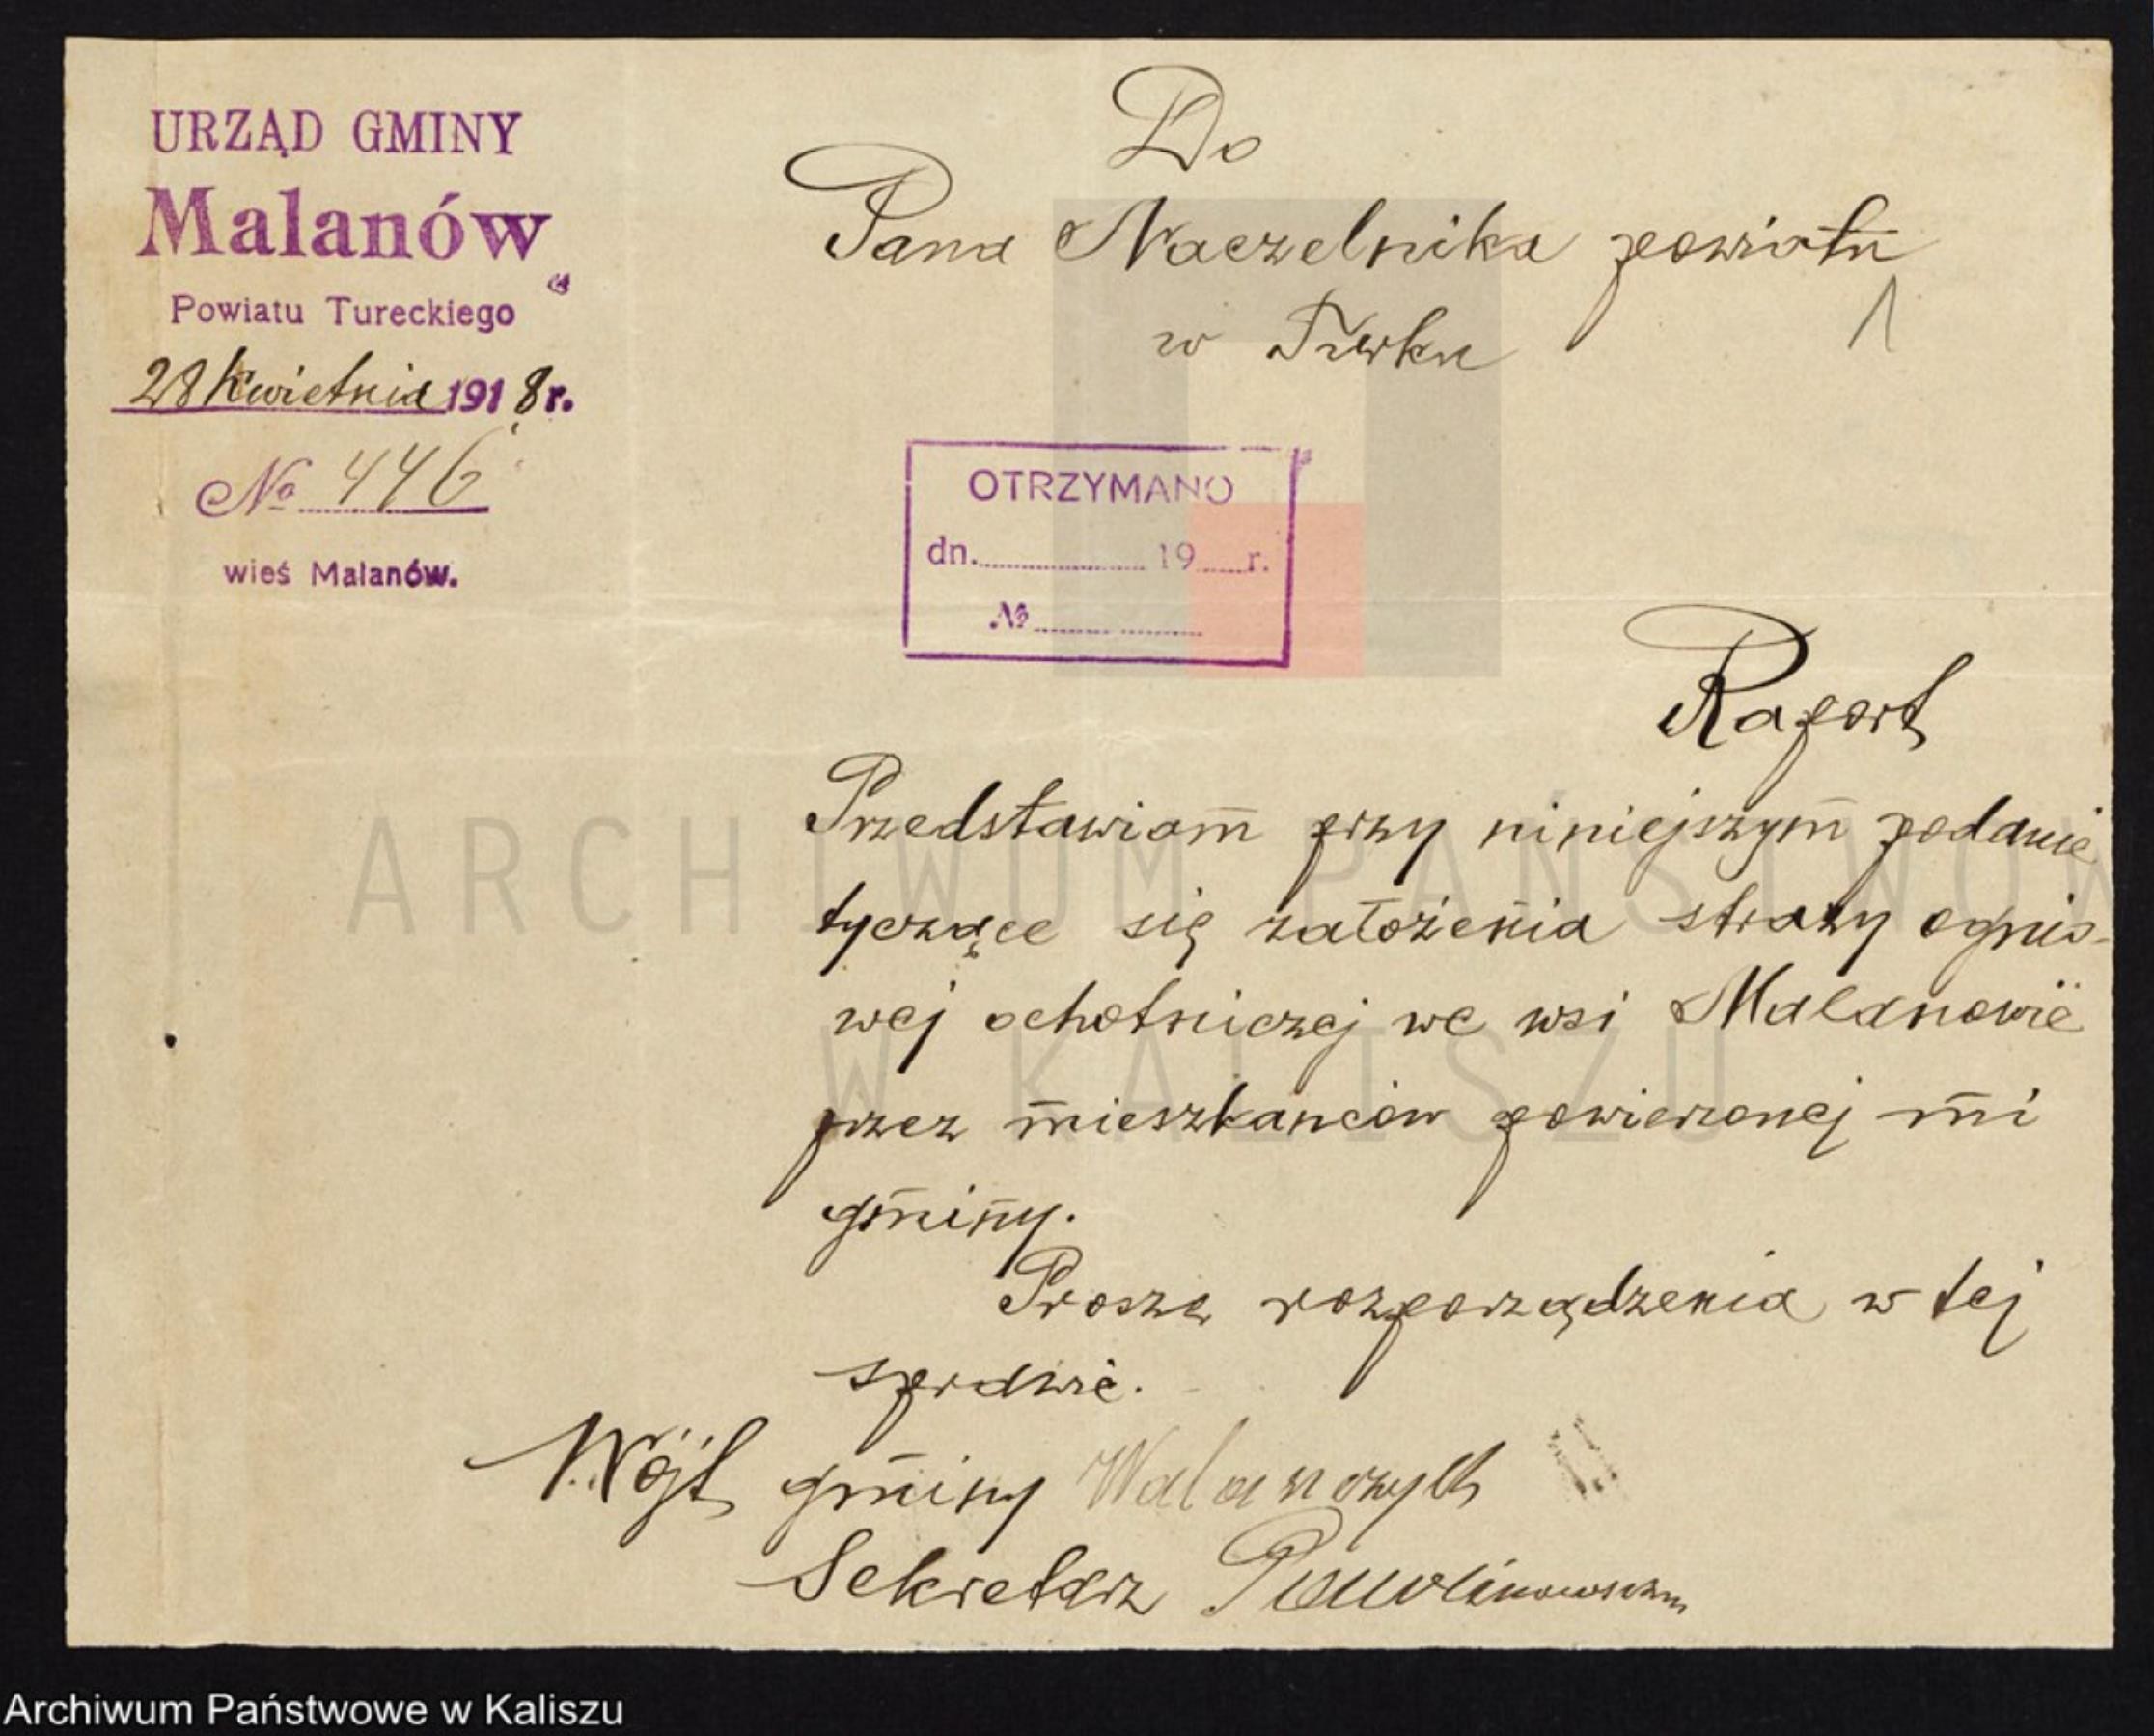 URZĄD GMINY
Malanów
Powiatu Tureckiego
28 Kwietnia 1918 r.
No 446
wieś Malanów.
Do
Pana Naczelnika powiatu
w Turku
1
OTRZYMANO
dn. 19 r.
№
Raport
Przedstawiam przy niniejszym podanie
tyczące się założenia straży ognio-
wej ochotniczej we wsi Malanowie
przez mieszkańców powierzonej mi
gminy.
Proszę rozporządzenia w tej
sprawie.
Wójt gminy
Sekretarz
ARCHIWUM PAŃSTWOW
W KALISZU
Archiwum Państwowe w Kaliszu